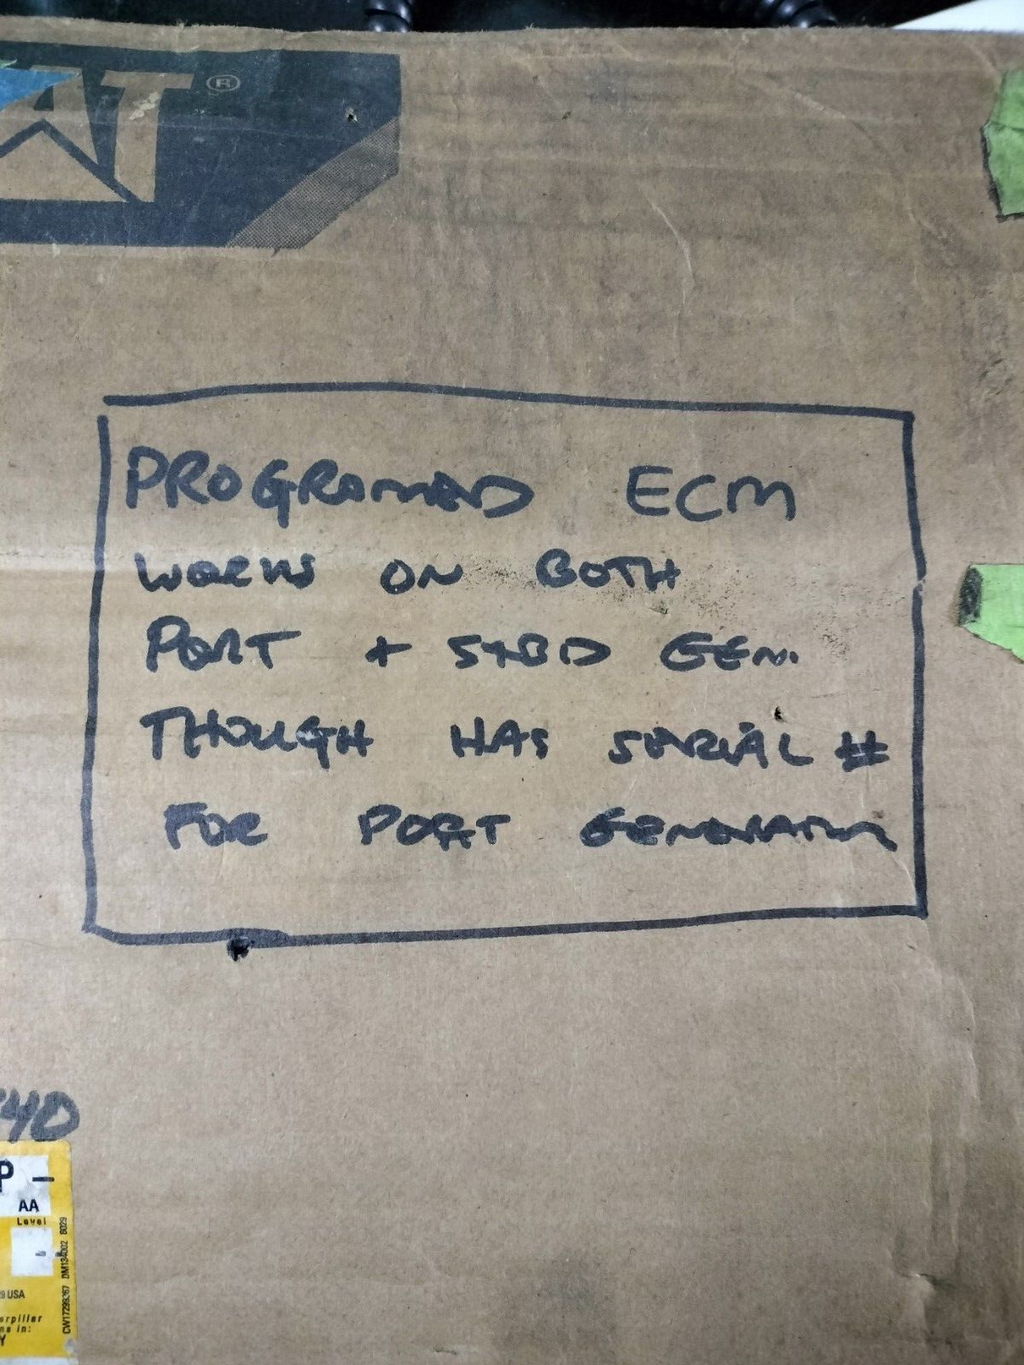 AT®
PROGRAMED ECM
WORKS ON BOTH
PORT + STBD GEN.
THOUGH HAS SERIAL #
FOR PORT GENERATOR
40
P -
AA
Level
-
9 USA
orpillar
ne in:
Y